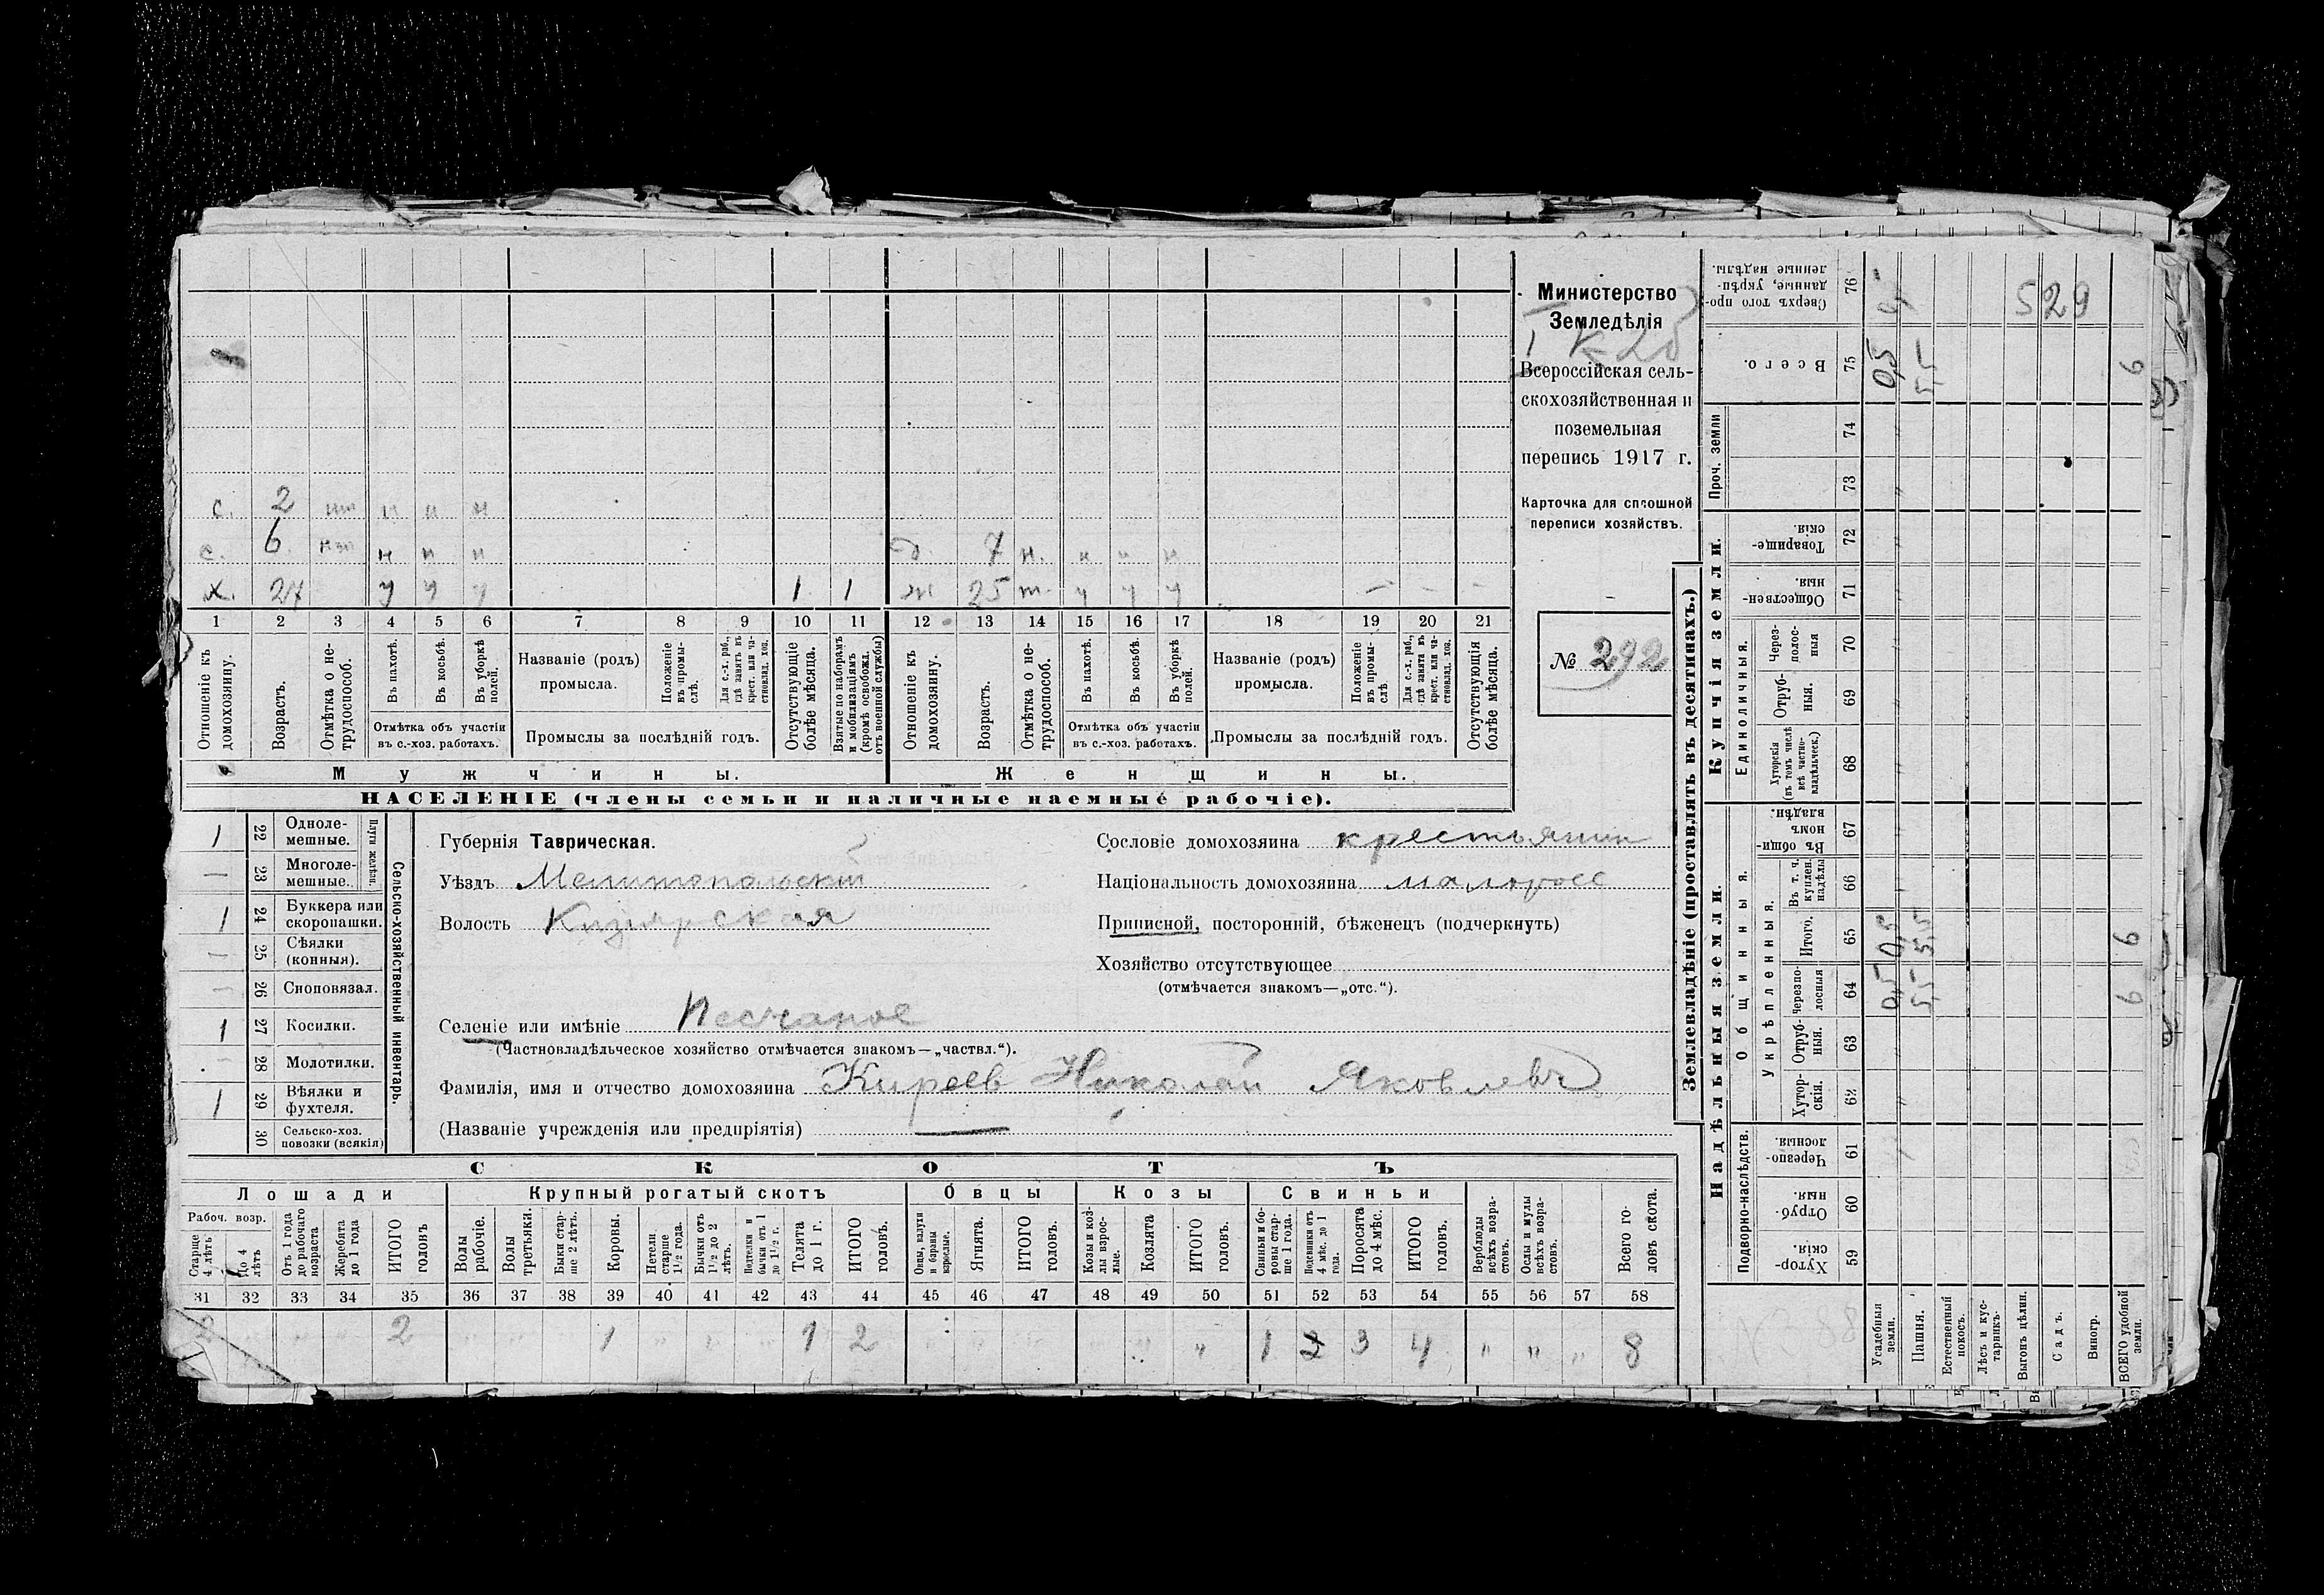 с. 2 нт н н н
с. 6. н н н д. 7 н. н н н
х. 27 у у у 1 1 ж 25 т. у у у — - -
1 2 3 4 5 6 7 8 9 10 11 12 13 14 15 16 17 18 19 20 21
Отношеніе къ домохозяину.
Возрастъ.
Отмѣтка о не-трудоспособ.
Въ пахотѣ.
Въ косьбѣ.
Въ уборкѣ полей.
Отмѣтка объ участіи
въ с.-хоз. работахъ.
Названіе (родъ)
промысла.
Положеніе въ промы-слѣ.
Для с.-х. раб., гдѣ занятъ въ крест. или ча-стновлад. хоз.
Промыслы за послѣдній годъ.
Отсутствующіе болѣе мѣсяца.
Взятые по наборамъ и мобилизаціямъ (кромѣ освобожд. отъ военной службы)
Отношеніе къ домохозяину.
Возрастъ.
Отмѣтка о не-трудоспособ.
Въ пахотѣ.
Въ косьбѣ.
Въ уборкѣ полей.
Отмѣтка объ участіи
въ с.-хоз. работахъ.
Названіе (родъ)
промысла.
Положеніе въ промы-слѣ.
Для с.-х. раб., гдѣ заняты въ крест. или ча-стновлад. хоз.
Промыслы за послѣдній годъ.
Отсутствующія болѣе мѣсяца.
Мужчины. Женщины.
НАСЕЛЕНІЕ (члены семьи и наличные наемные рабочіе).
Министерство
Земледѣлія
Всероссійская сель-
скохозяйственная и
поземельная
перепись 1917 г.
Карточка для сплошной
переписи хозяйствъ.
№ 292
1 22 Однолемешные.
— 23 Многолемешные.
Плуги желѣзн.
1 24 Буккера или скоропашки.
— 25 Сѣялки (конныя).
— 26 Сноповязал.
1 27 Косилки.
- 28 Молотилки.
1 29 Вѣялки и фухтеля.
30 Сельско-хоз. повозки (всякія)
Сельско-хозяйственный инвентарь.
Губернія Таврическая.
Уѣздъ Мелитопольскій
Волость Кизиярская
Сословіе домохозяина крестьянин
Національность домохозяина малоросс
Приписной, посторонній, бѣженецъ (подчеркнуть)
Хозяйство отсутствующее
(отмѣчается знакомъ—„отс.“).
Селеніе или имѣніе Песчаное
(Частновладѣльческое хозяйство отмѣчается знакомъ—„частвл.“).
Фамилія, имя и отчество домохозяина Киреев Николай Яковлевъ
(Названіе учрежденія или предпріятія) —
СКОТЪ
Лошади Крупный рогатый скотъ Овцы Козы Свиньи
Рабоч. возр.
Старше 4 лѣтъ
До 4 лѣтъ
Отъ 1 года до рабочаго возраста
Жеребята до 1 года
ИТОГО головъ
Волы рабочіе.
Волы третьяки.
Быки стар-ше 2 лѣтъ.
Коровы.
Нетели старше 1½ года.
Бычки отъ 1½ до 2 лѣтъ.
Подтелки и бычки отъ 1 до 1½ г.
Телята до 1 г.
ИТОГО головъ.
Овцы, валухи и бараны взрослые.
Ягнята.
ИТОГО головъ.
Козы и коз-лы взрос-лые.
Козлята
ИТОГО головъ.
Свиньи и бо-ровы стар-ше 1 года.
Подсвинки отъ 4 мѣс. до 1 года.
Поросята до 4 мѣс.
ИТОГО головъ.
Верблюды всѣхъ возра-стовъ.
Ослы и мулы всѣхъ возра-стовъ.
Всего го-ловъ скота.
31 32 33 34 35 36 37 38 39 40 41 42 43 44 45 46 47 48 49 50 51 52 53 54 55 56 57 58
2 „ „ 2 „ „ 1 „ „ „ 1 2 „ „ 1 3 4 „ „ „ 8
Землевладѣніе (проставлять въ десятинахъ.)
Надѣльныя земли. Купчія земли. Проч. земли
Подворно-наслѣдств. Общинныя. Укрѣпленныя. Единоличныя.
Сверхъ того про-данные, укрѣп-ленные надѣлы. 76 529
Всего. 75 0,5 5,5 6
74
73
Товарище-скія. 72
Обществен-ныя. 71
Через-полос-ныя 70
Отруб-ныя. 69
Хуторскія (въ томъ числѣ всѣ частно-владѣльческ.) 68
Въ общи-номъ владѣн. 67
Въ т. ч. куплен. надѣлы 66
Итого. 65 0,5 5,5 6
черезпо-лосныя 64 0,5 5,5 6
Отруб-ныя. 63
Хутор-скія. 62
Черезпо-лосныя. 61
Отруб-ныя. 60
Хутор-скія. 59
Усадебныя земли.
Пашня.
Естественный покосъ.
Лѣсъ и кус-тарникъ.
Выгонъ цѣлин.
Садъ.
Виногр.
ВСЕГО удобной земли.